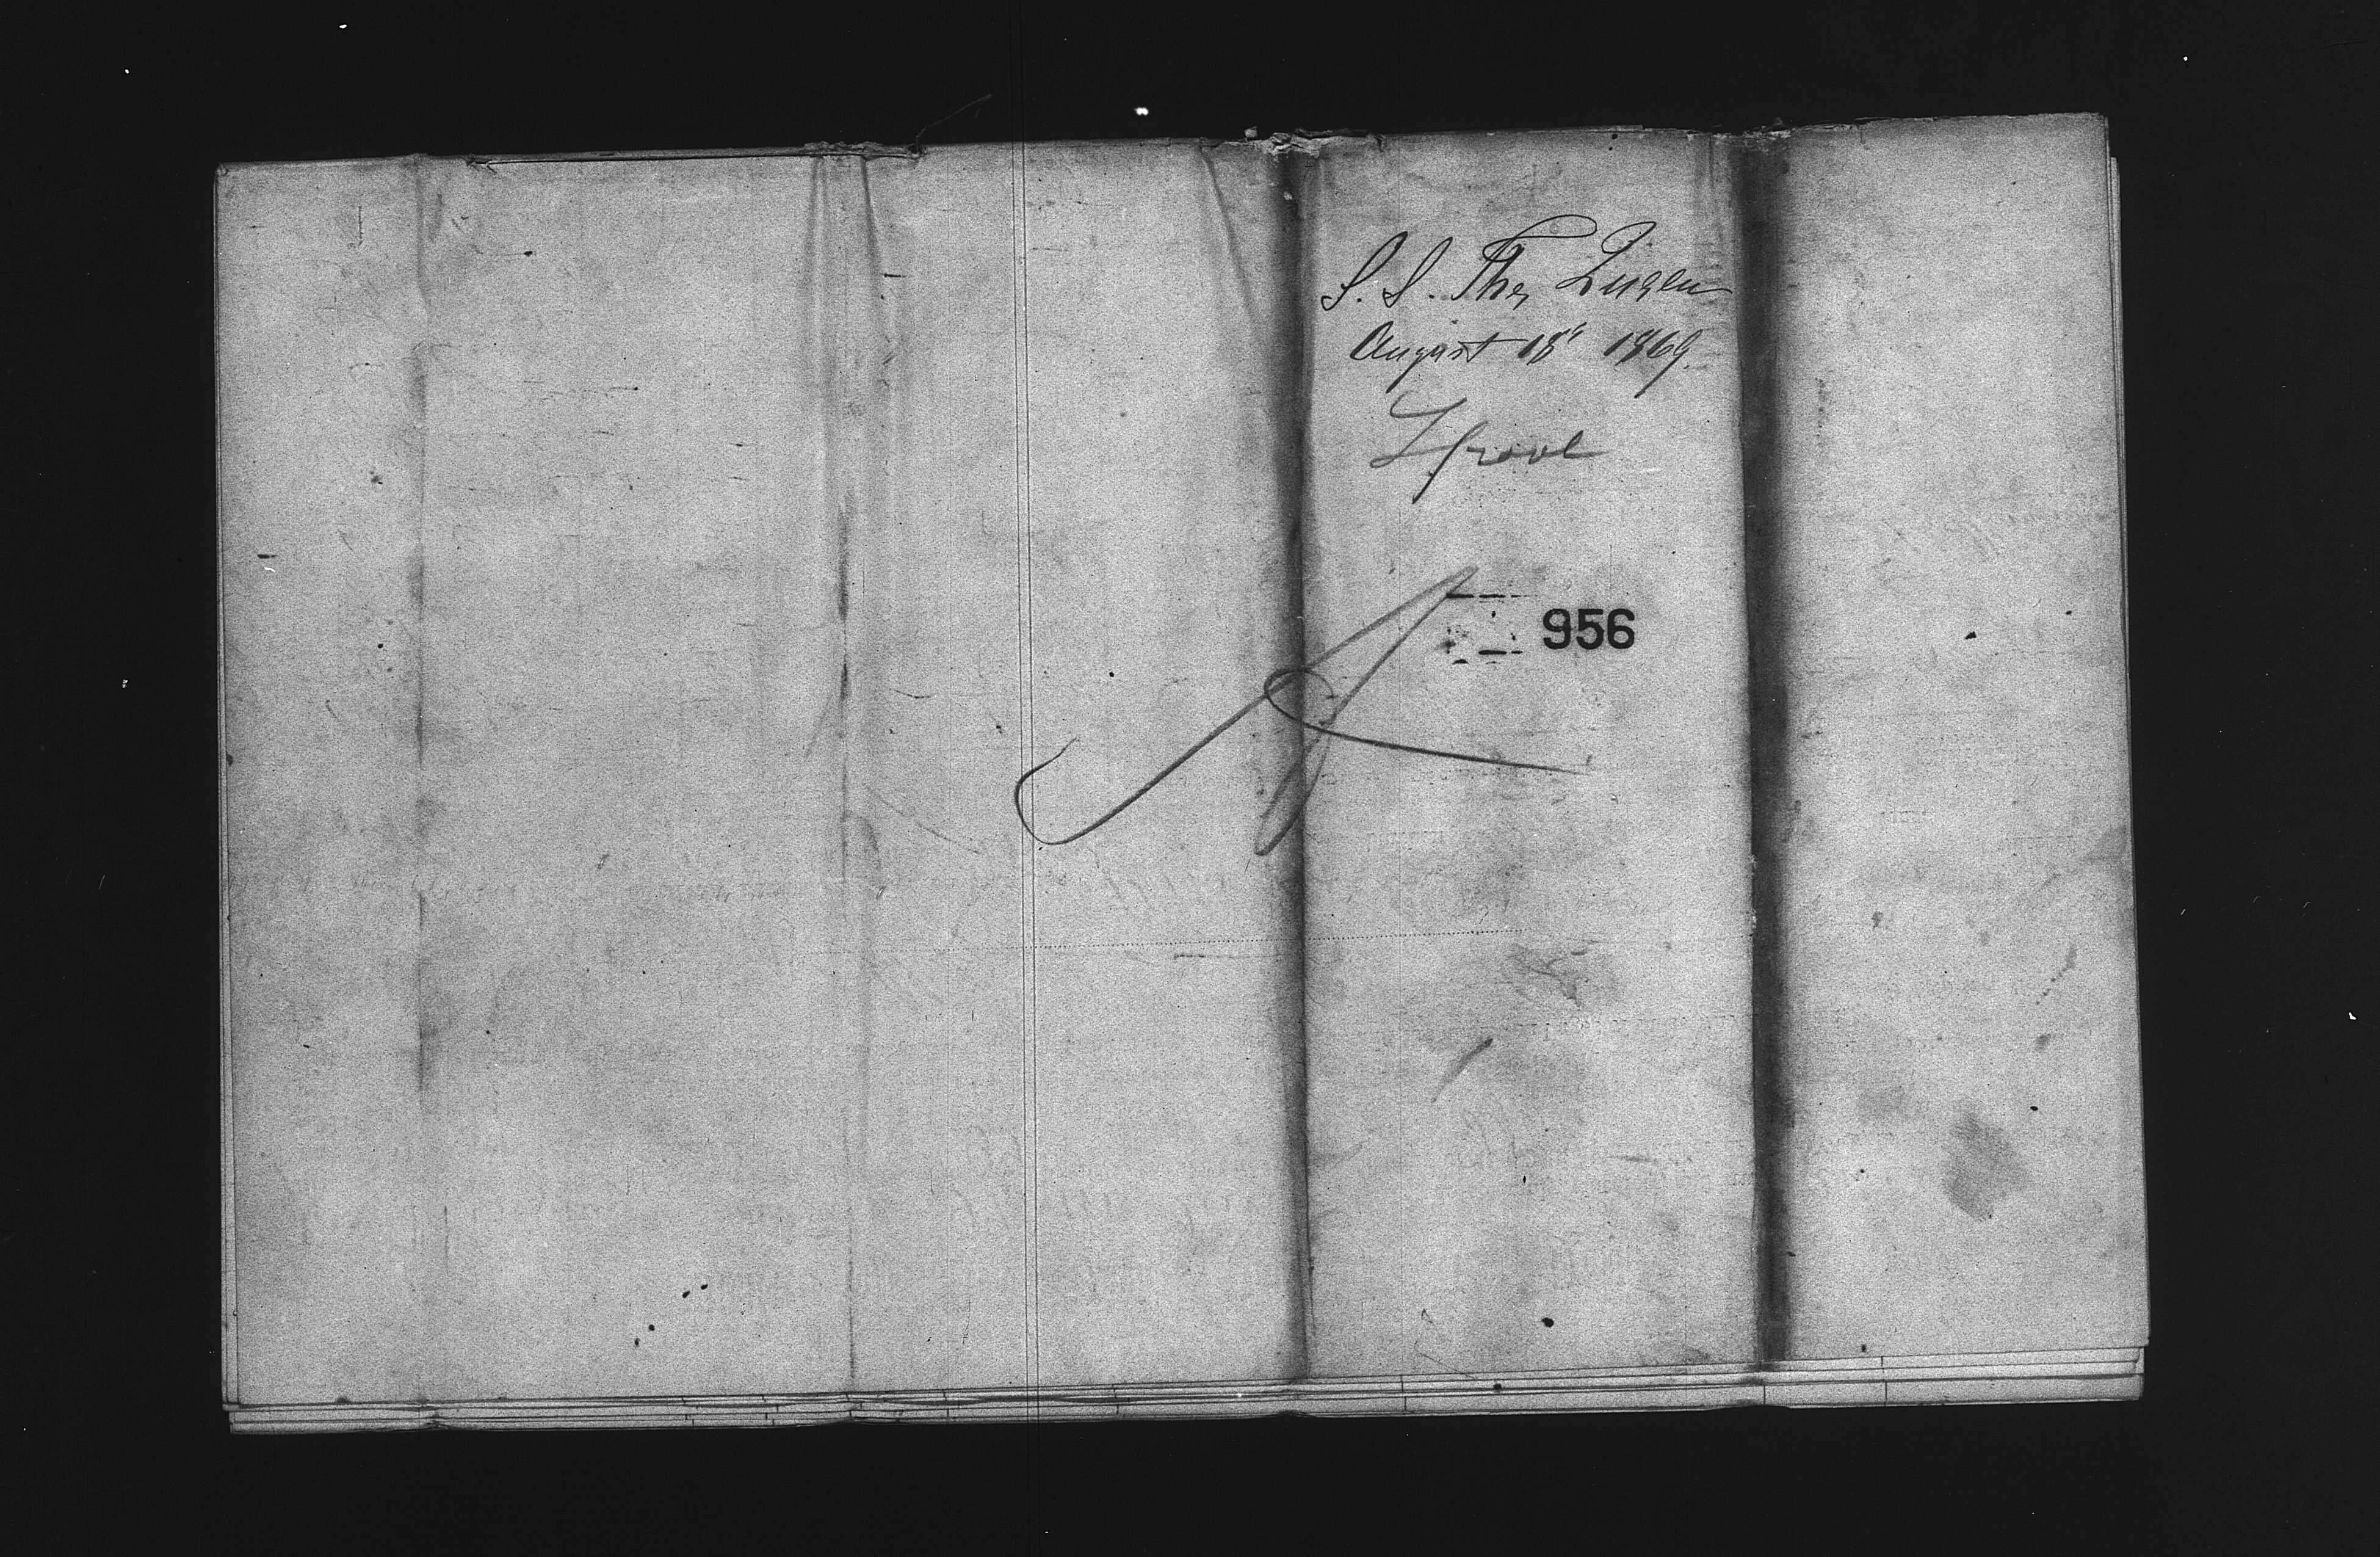 S. S. The Queen
August 18" 1869.
Lpool
956